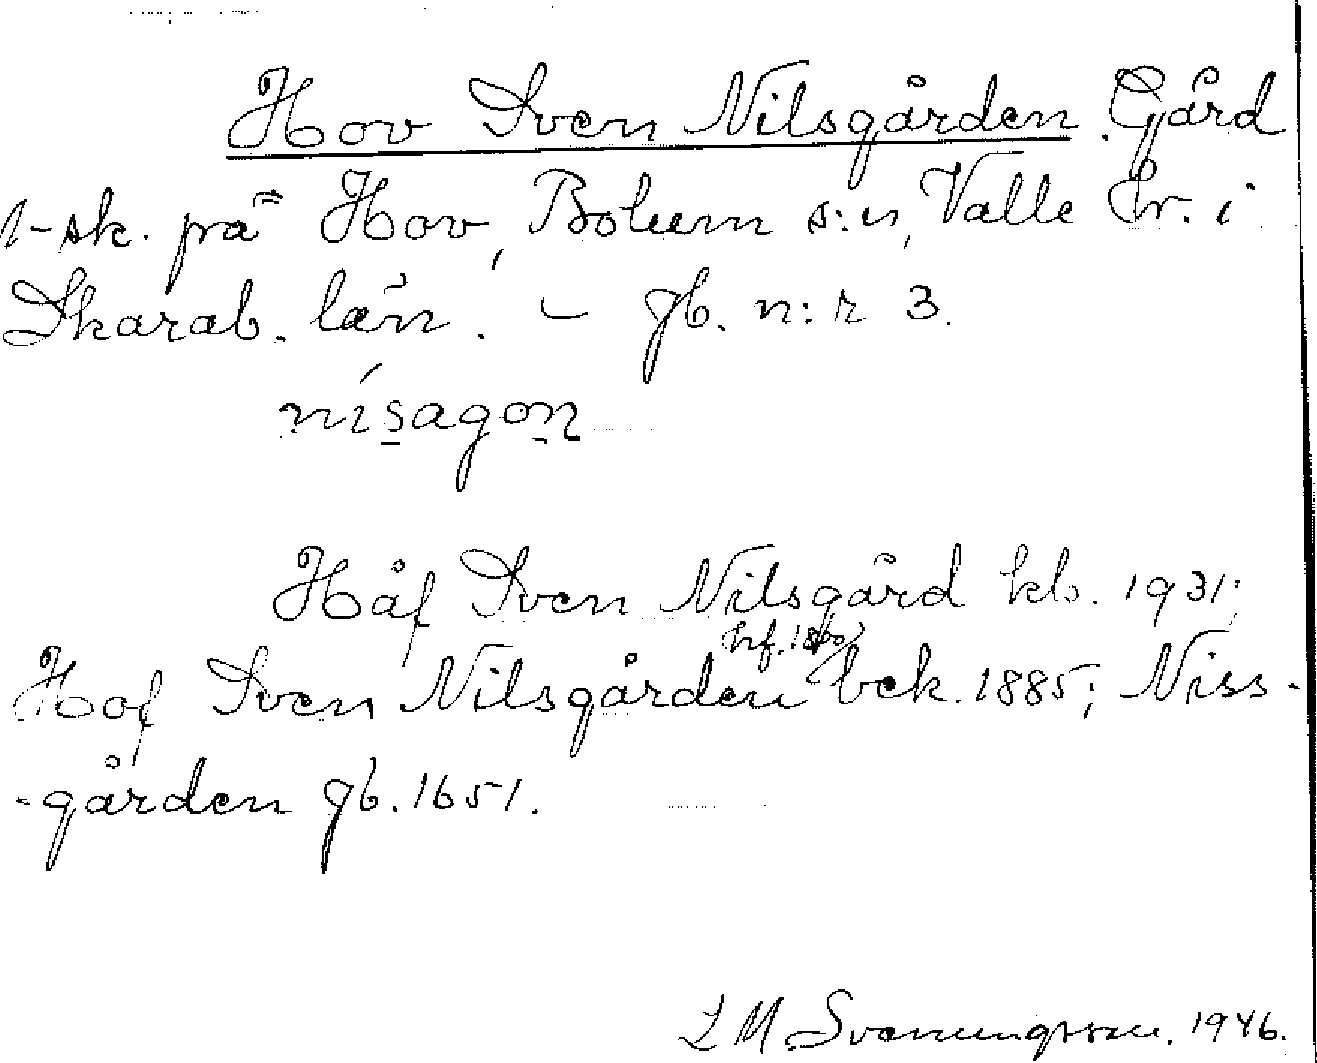 Hov Sven Nilsgården. Gård
1-sk. på Hov, Bolum s:n, Valle hr. i
Skarab. län. – gb. n:r 3.
nísagon
Håf Sven Nilsgård kb. 1931;
hf. 1880
Hof Sven Nilsgården bek. 1885; Niss-
-gården gb. 1651.
L M. Svenungsson. 1946.